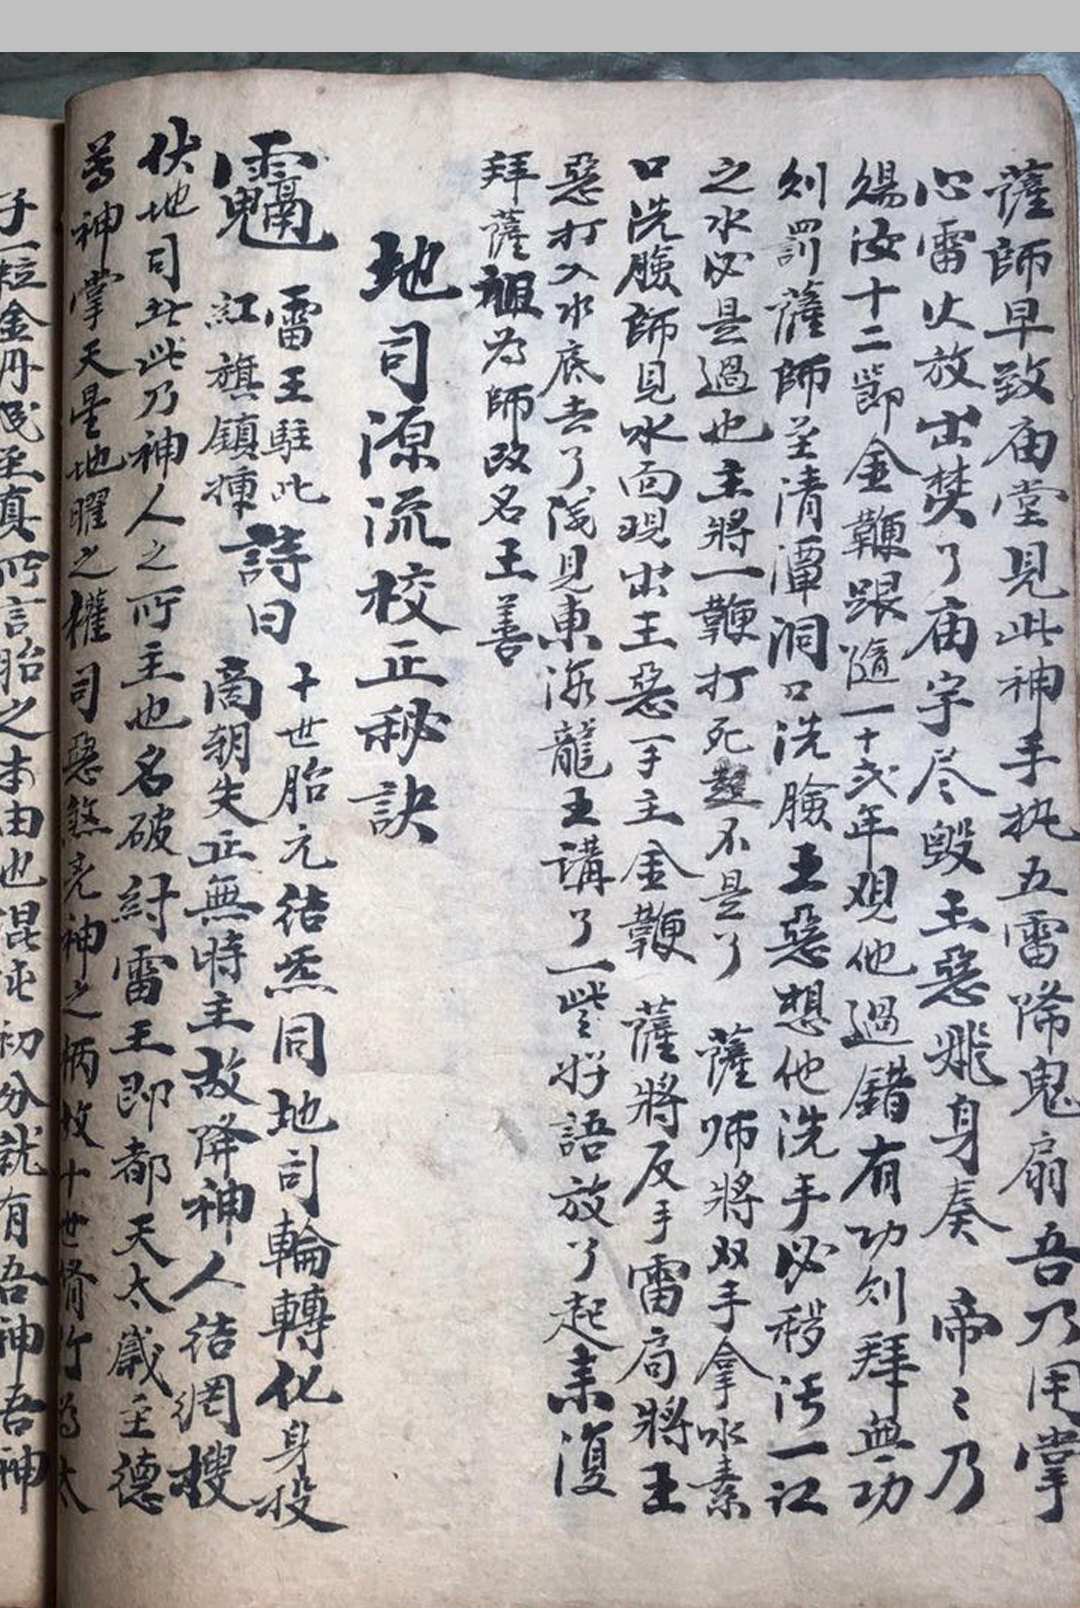 薩師早致庙堂見此神手执五雷降鬼扇吾乃用掌
心雷火放出焚了庙宇尽毁王惡姚身奏 帝〻乃
賜汝十二節金鞭跟隨一十弍年观他過錯有功则拜無功
则罰薩師至清潭洞口洗臉王惡想他洗手必移污一江
之水必是過也主將一鞭打死 不是了 薩师將双手拿水素
口洗臉師見水面現出王惡一手主金鞭 薩將反手雷局將王
惡打入水底去了 見東海龍王講了一些好語放了起来復
拜薩祖為師改名王善
地司源流校正秘訣
雷王駐此
紅旗鎮 
詩曰
十世胎元结炁同地司輪轉化身投
商朝失正無時主故降神人结網搜
伏地司 此乃神人之所主也名破紂雷王即都天太歲至德
尊神掌天星地曜之權司惡煞 神之柄故十世脩行為太
子一粒金丹 至真所言胎之本由也混沌初分就有吾神吾神